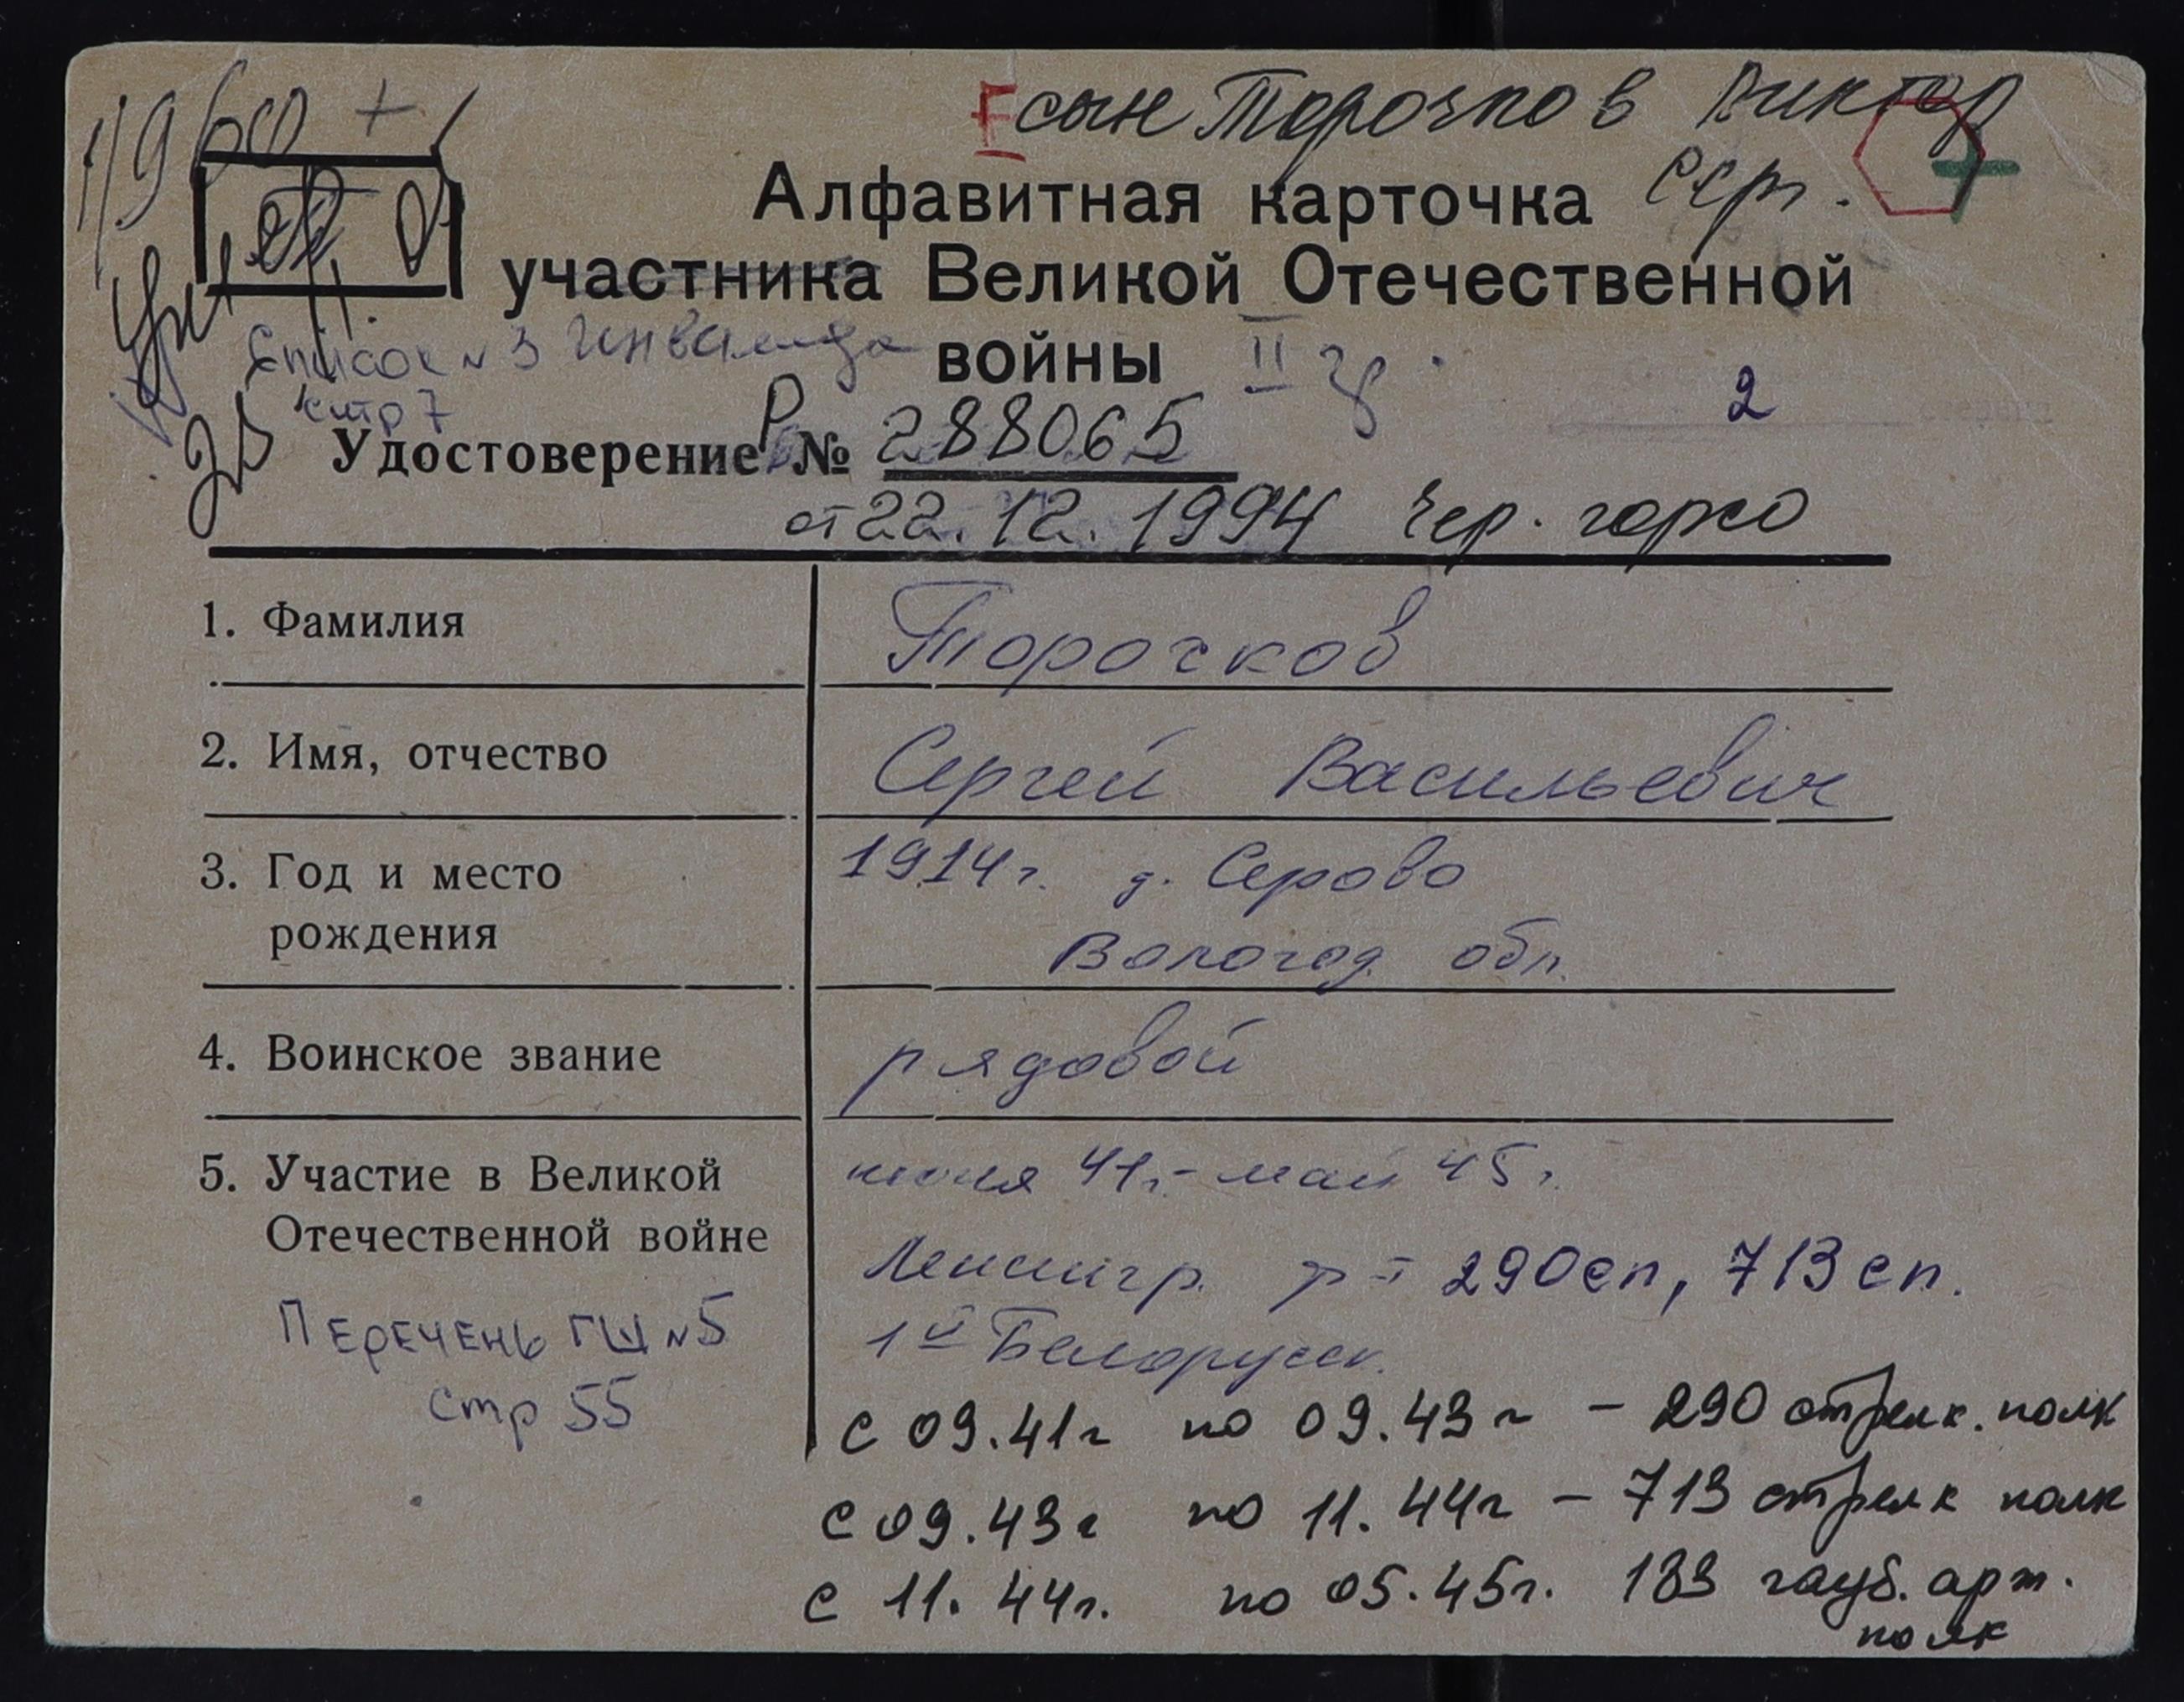 сын Торочков Виктор
Серг.
1960 +
Алфавитная карточка
участника Великой Отечественной
Список № 3 инвалида войны II гр
2
стр 7
Удостоверение Р № 288065
от 22.12.1994 Чер. горво
1. Фамилия Торочков
2. Имя, отчество Сергей Васильевич
3. Год и место 1914 г. д. Серово
рождения Вологод. обл.
4. Воинское звание рядовой
5. Участие в Великой июля 41 г. - май 45 г.
Отечественной войне Ленингр. 290 сп, 713 сп.
Перечень ГШ №5 1й Белорусск.
стр 55 с 09.41г по 09.43г - 290 стрелк. полк
с 09.43г по 11.44г - 713 стрелк полк
с 11.44г. по 05.45г. 183 гауб. арт.
полк